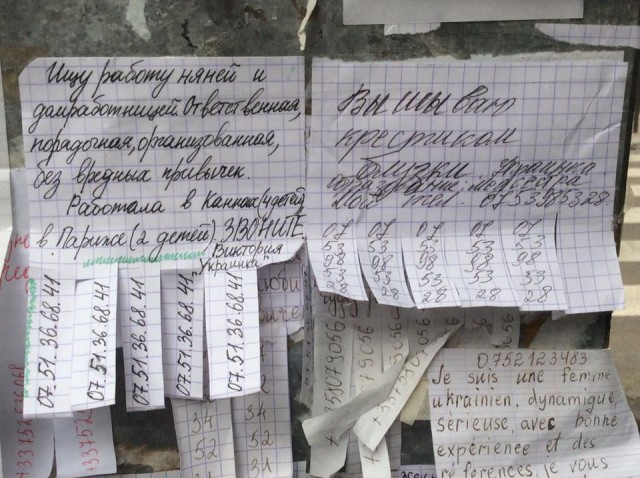 Ищу работу няней и
домработницей. Ответственная,
порядочная, организованная,
без вредных привычек.
Работала в Каннах (4 детей)
в Париже (2 детей). ЗВОНИТЕ
Виктория
Украинка
07.51.36.68.41
07.51.36.68.41
07.51.36.68.41
07.51.36.68.41
07.51.36.68.41
Вышываю
крестиком
блузки Украинка
Мой тел. 0753985328
07 07 07 07 07
53 53 53 53 53
98 98 98 98 98
53 53 53 53 53
28 28 28 28 28
34 34
52 52
31
0752123483
Je suis une femme
ukrainien, dynamique,
sérieuse, avec bonne
expérience et des
références, je vous